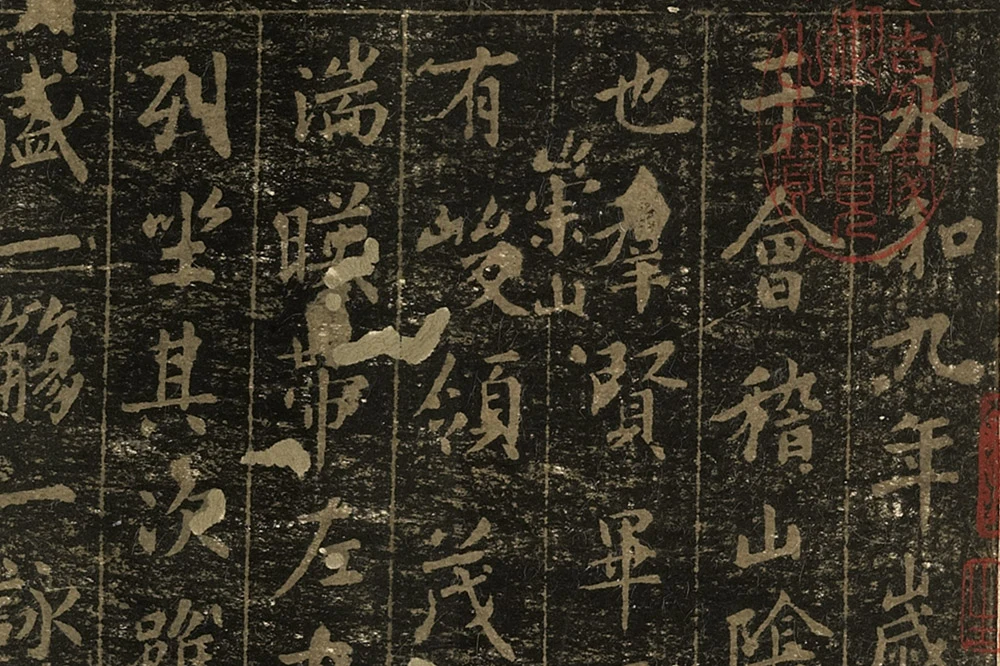 永和九年歲
于會稽山陰
也羣賢畢
崇山
有峻領茂
湍暎帶左右
列坐其次雖
盛一觴一詠